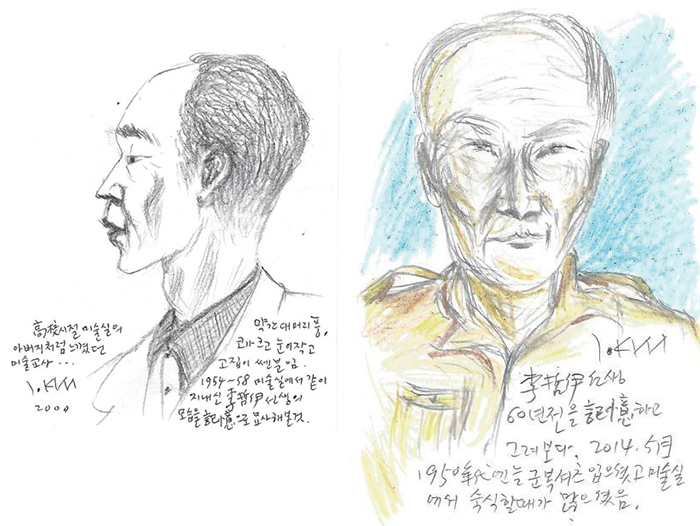 高校시절 미술실의
아버지처럼 느꼈던
미술교사...
J.KIM
2000
약간 대머리풍,
코가 크고 눈이 작고
고집이 쎈분임.
1954~58 미술실에서 같이
지내신 李哲伊선생의
모습을 記憶으로 묘사해본것.
J.KIM
李哲伊선생
60년전을 記憶하고
그려보다. 2014. 5月
1950年代엔 늘 군복셔츠 입으셨고 미술실
에서 숙식할때가 많으셨음.